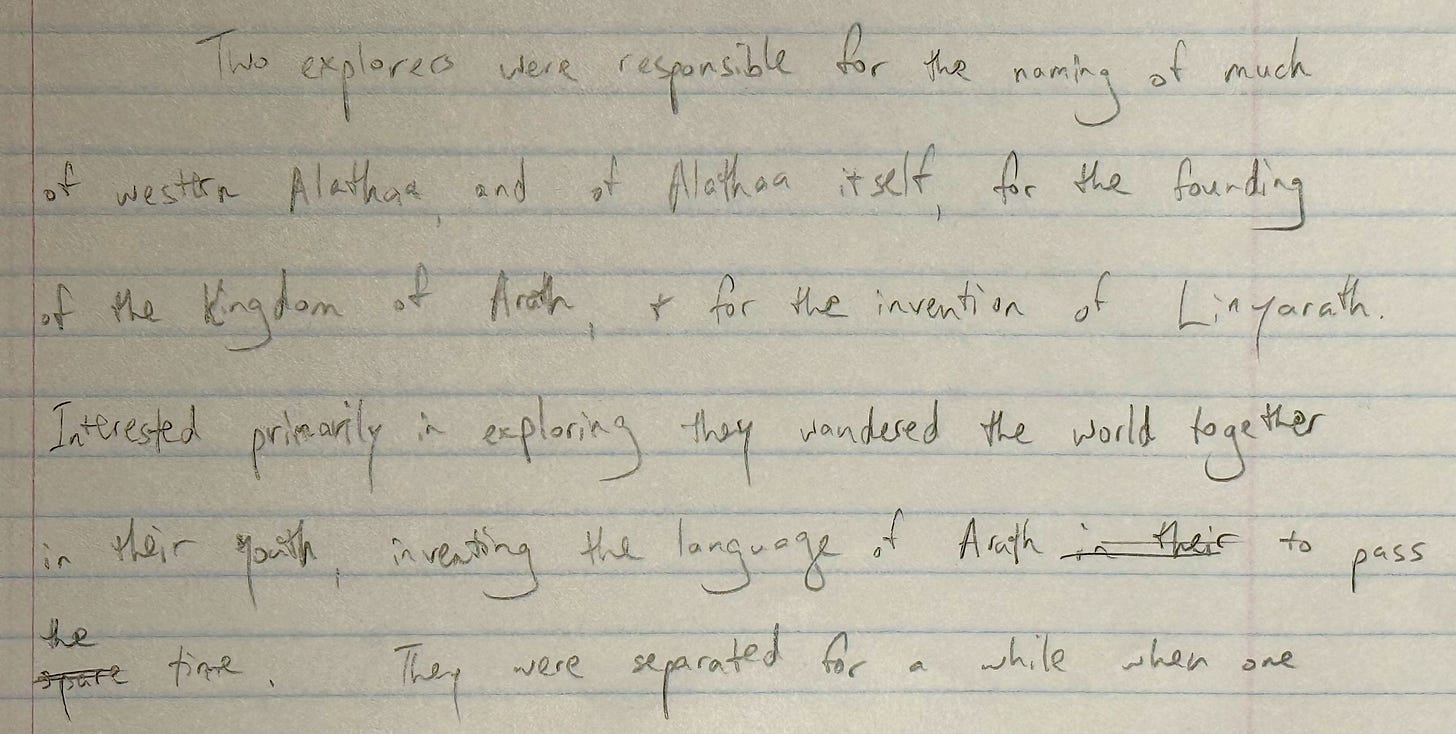 Two explorers were responsible for the naming of much
of western Alathaa, and of Alathaa itself, for the founding
of the Kingdom of Arath, + for the invention of Linyarath.
Interested primarily in exploring they wandered the world together
in their youth, inventing the language of Arath in their to pass
the
spare time. They were separated for a while when one